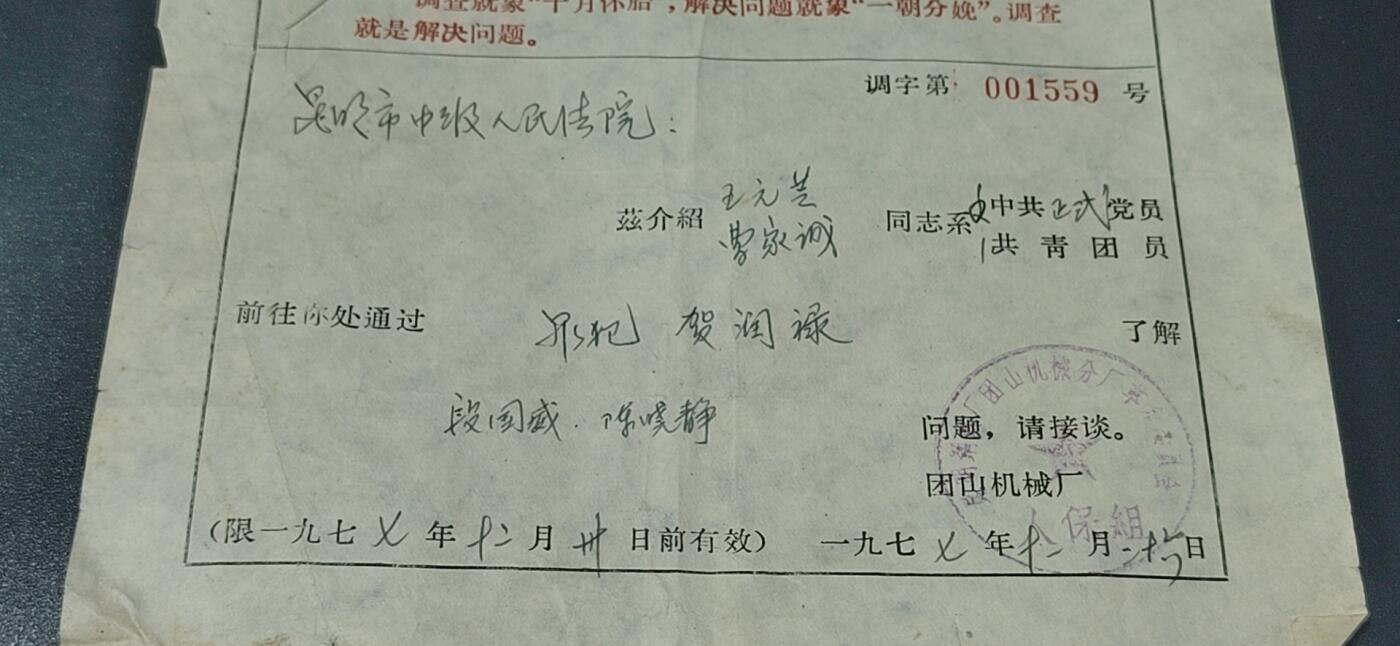 调查就象“十月怀胎”,解决问题就象“一朝分娩”。调查
就是解决问题。
调字第 001559 号
昆明市中级人民法院:
兹介紹 王元兰 曹家诚 同志系 中共正式党员 共青团员
前往你处通过 罪犯 贺润禄 了解
段国威.陈晓静 问题,请接谈。
团山机械厂
(限一九七七年十二月卅日前有效) 一九七七年十二月二十六日
团山机械分厂
人保组